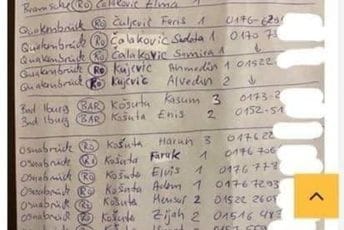 Bramsche (RO) Čalaković Elma 1
Quakenbrück (RO) Čuljević Faris 1 0176-629
Quakenbrück (RO) Čalaković Sudata 1 0170 73
Quakenbrück (RO) Čalaković Samira 1 ↓
Quakenbrück (RO) Kujević Ahmedin 1 01522
Quakenbrück (RO) Kujević Alvedin 2 ↓
Bad Iburg (BAR) Košuta Kasum 3 0173-2
Bad Iburg (BAR) Košuta Enis 2 0152-51
Osnabrück (RO) Košuta Harun 3 017622
Osnabrück (RO) Košuta Faruk 1 0176 706
Osnabrück (RO) Košuta Elvis 1 0176 778
Osnabrück (RO) Košuta Adem 1 0176 7293
Osnabrück (RO) Košuta Mensur 2 01522 260
Osnabrück (RO) Košuta Zijah 2 01516 483